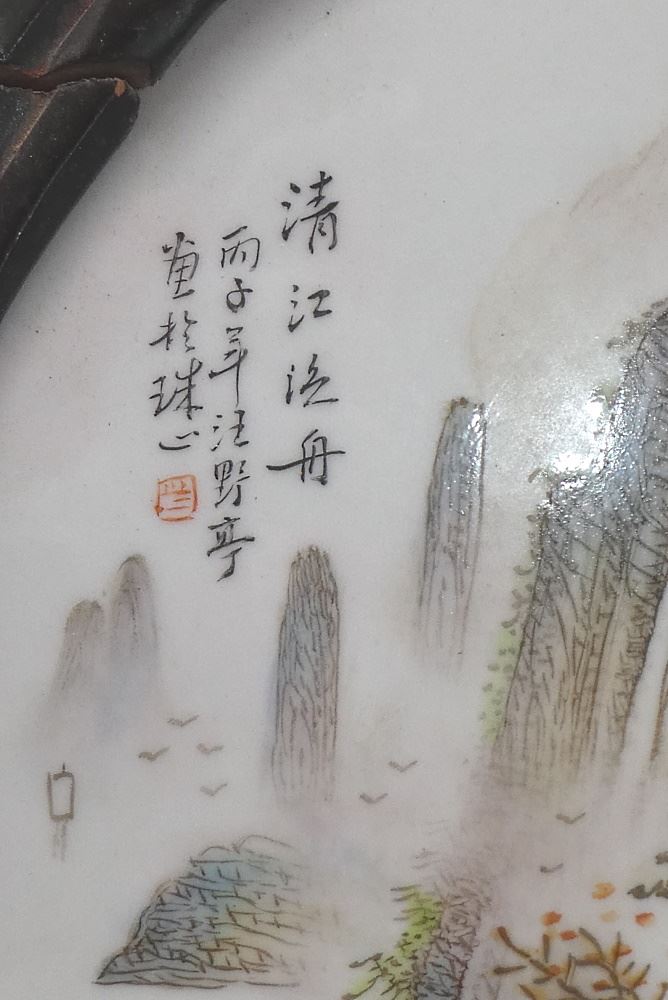 清江泛舟
丙子年汪野亭
畫於珠山